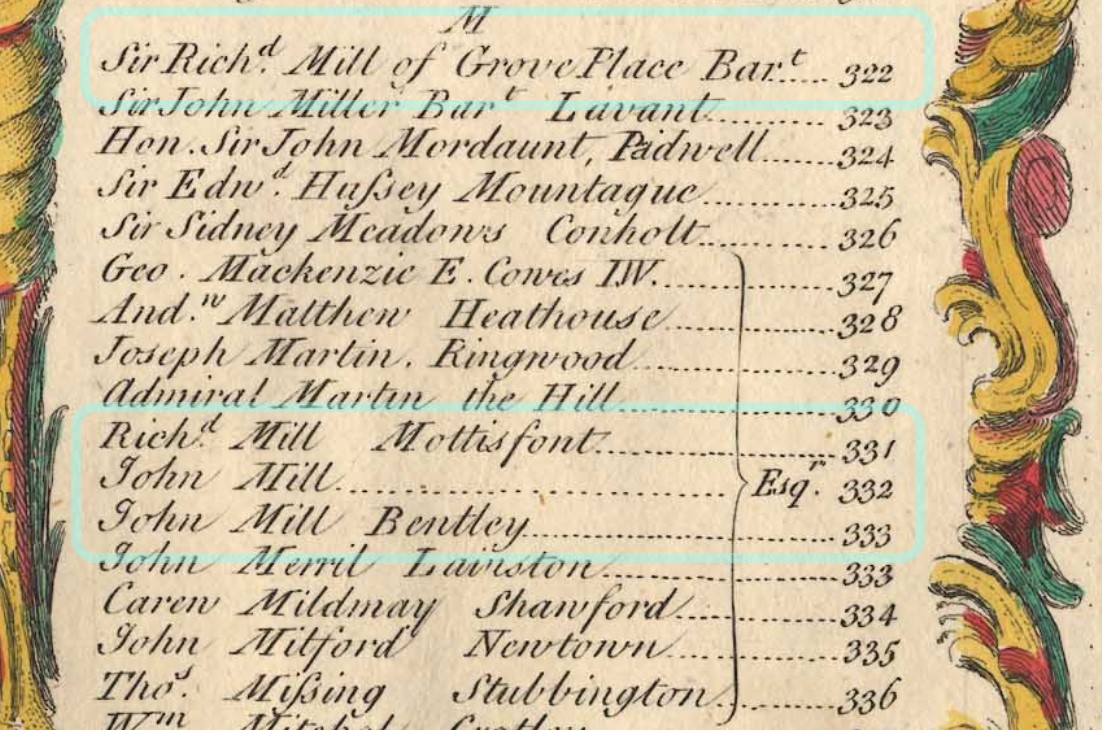 M
Sir Rich.d Mill of Grove Place Bar.t 322
Sir John Miller Bar.t Lavant 323
Hon. Sir John Mordaunt, Padwell 324
Sir Edw.d Hußey Mountague 325
Sir Sidney Meadows Conholt 326
Geo. Mackenzie E. Cowes IW. 327
And.w Matthew Heathouse 328
Joseph Martin. Ringwood 329
Admiral Martin the Hill 330
Rich.d Mill Mottisfont 331
John Mill Esq.r 332
John Mill Bentley 333
John Merril Lainston 333
Carew Mildmay Shawford 334
John Mitford Newtown 335
Tho.s Mißing Stubbington 336
W.m Mitchel